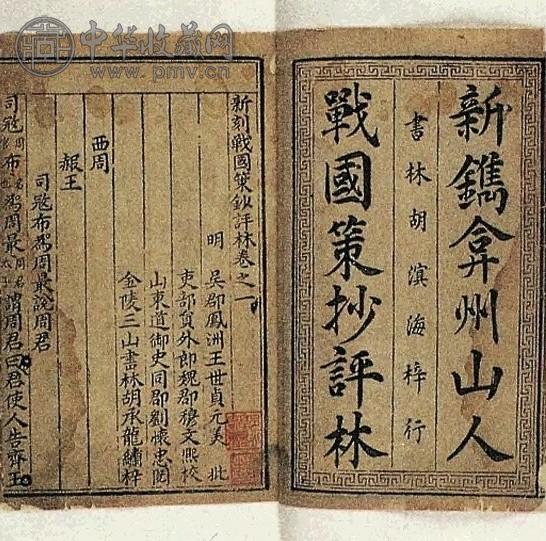 中华收藏网
www.pmv.cn
新鐫弇州山人
書林胡滇海梓行
戰國策抄評林
新刻戰國策鈔評林卷之一
明 吳郡鳳洲王世貞元美 批
吏部員外郎魏郡穆文熙校
山東道御史同郡劉懷忠閱
金陵三山書林胡承龍繡梓
西周
赧王
司寇布為周最說周君
司寇布為周最謂周君曰君使人告齊王